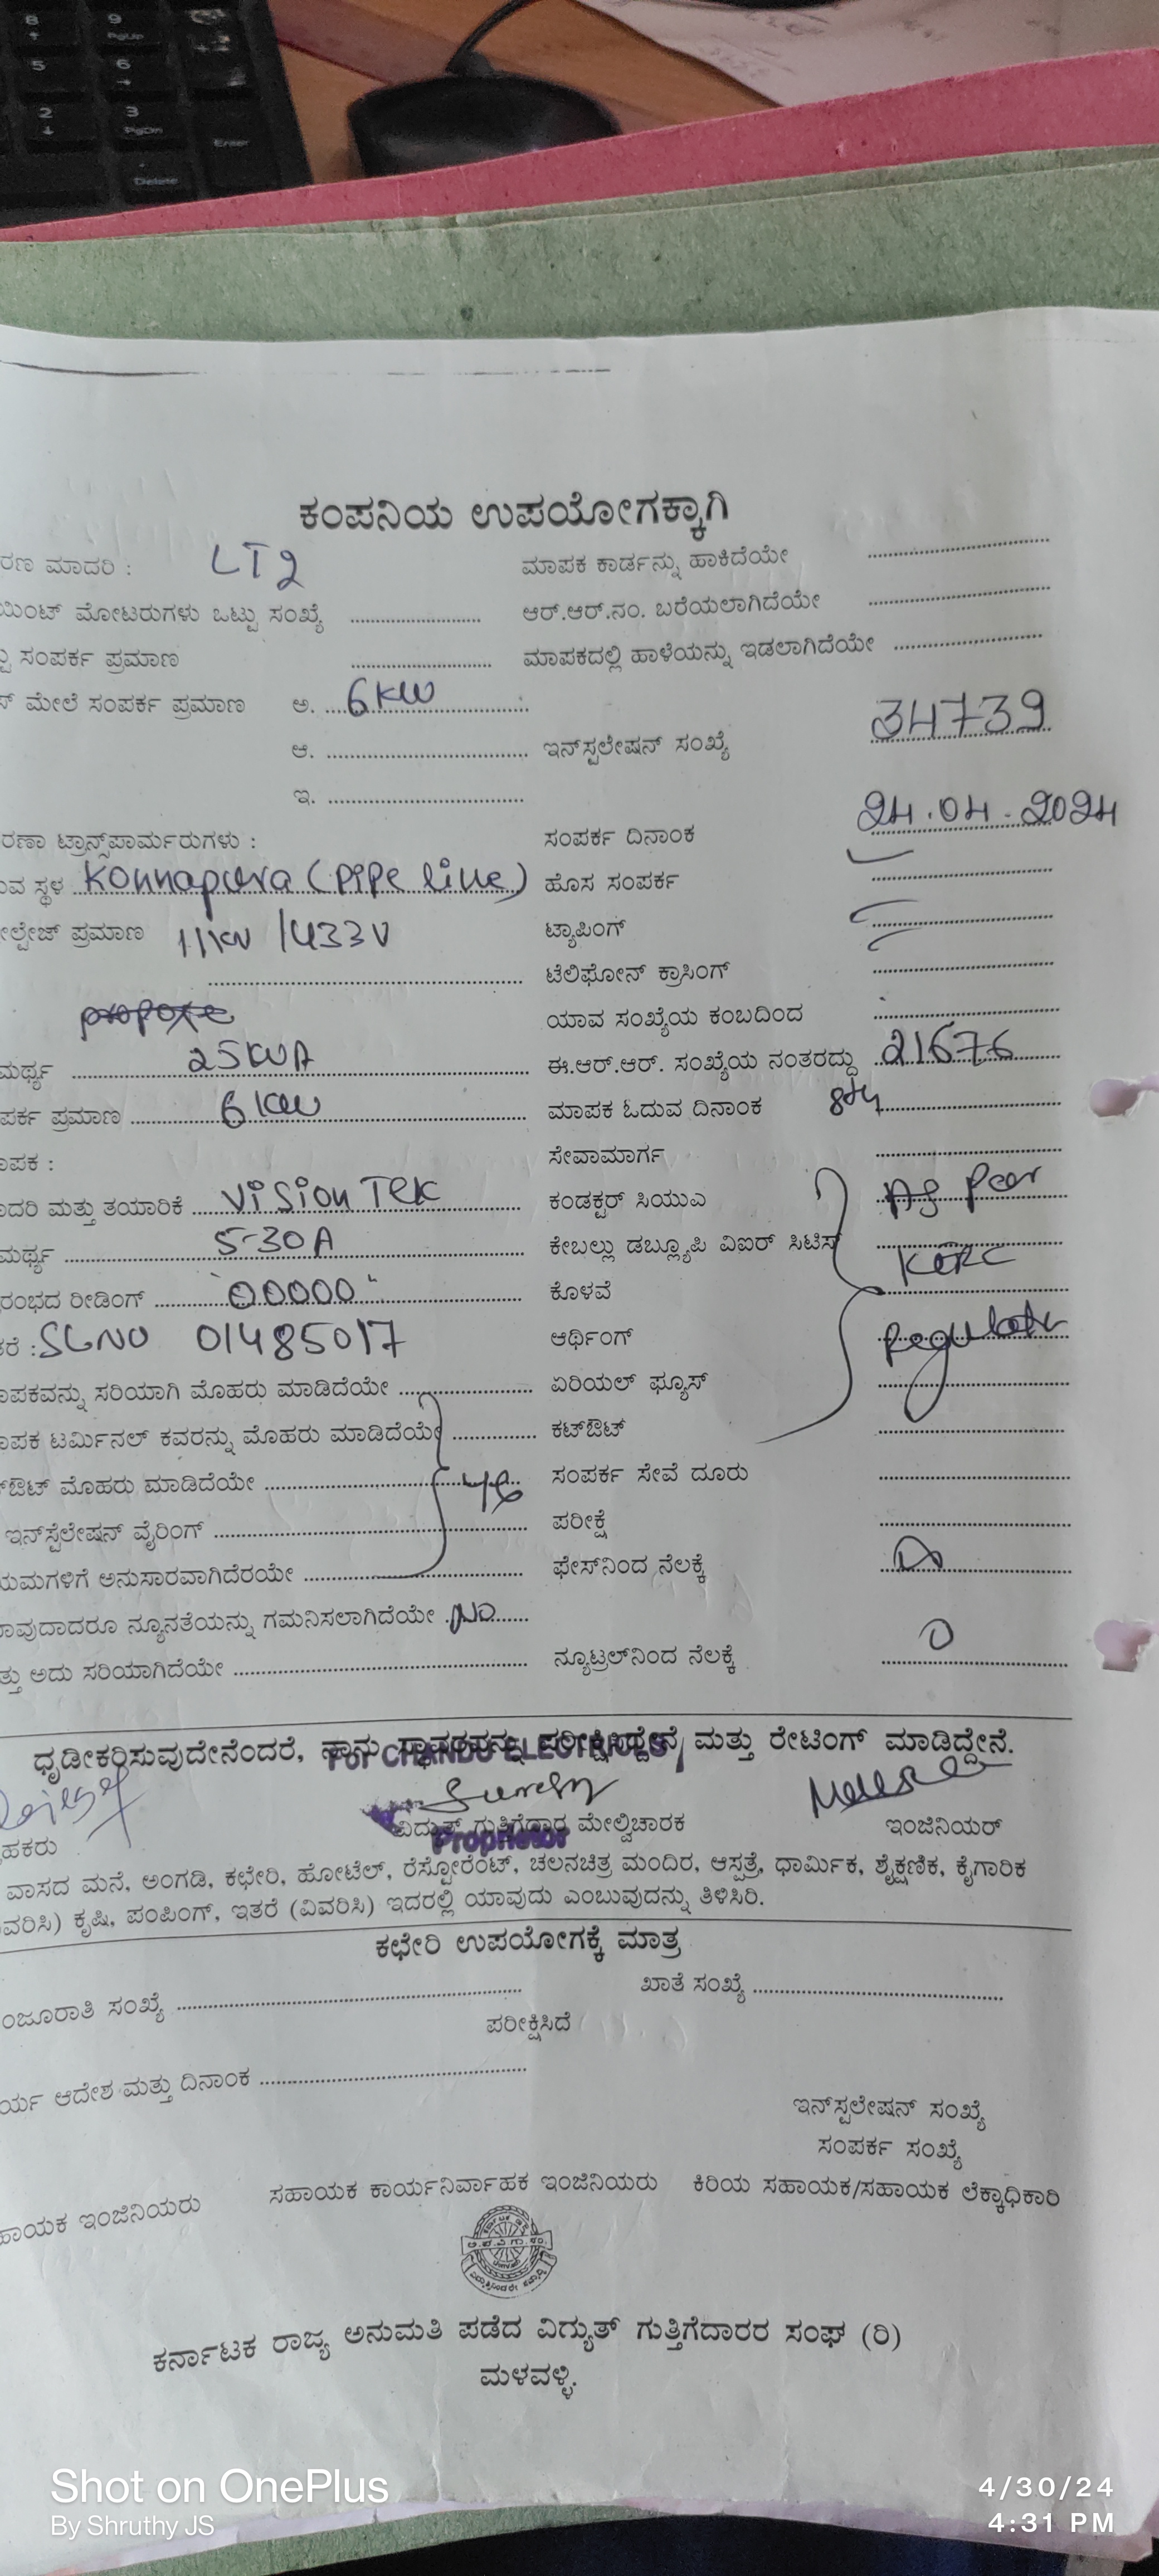 8 9 PgUp
5 6
2 3 PgDn Enter
Delete
ಕಂಪನಿಯ ಉಪಯೋಗಕ್ಕಾಗಿ
ರಣ ಮಾದರಿ : LT2 ಮಾಪಕ ಕಾರ್ಡನ್ನು ಹಾಕಿದೆಯೇ
ಯಿಂಟ್ ಮೋಟರುಗಳು ಒಟ್ಟು ಸಂಖ್ಯೆ ಆರ್.ಆರ್.ನಂ. ಬರೆಯಲಾಗಿದೆಯೇ
ಸಂಪರ್ಕ ಪ್ರಮಾಣ ಮಾಪಕದಲ್ಲಿ ಹಾಳೆಯನ್ನು ಇಡಲಾಗಿದೆಯೇ
ಸ್ ಮೇಲೆ ಸಂಪರ್ಕ ಪ್ರಮಾಣ ಅ. 6KW
ಆ. ಇನ್‌ಸ್ಟಲೇಷನ್ ಸಂಖ್ಯೆ 34739
ಇ.
ರಣಾ ಟ್ರಾನ್ಸ್‌ಪಾರ್ಮರುಗಳು : ಸಂಪರ್ಕ ದಿನಾಂಕ 24.04.2024
ವ ಸ್ಥಳ Konnapura (Pipe line) ಹೊಸ ಸಂಪರ್ಕ
ಲ್ಟೇಜ್ ಪ್ರಮಾಣ 11KV /433V ಟ್ಯಾಪಿಂಗ್
ಟೆಲಿಫೋನ್ ಕ್ರಾಸಿಂಗ್
ಯಾವ ಸಂಖ್ಯೆಯ ಕಂಬದಿಂದ
ಮರ್ಥ್ಯ 25KVA ಈ.ಆರ್.ಆರ್. ಸಂಖ್ಯೆಯ ನಂತರದ್ದು 21676
ಪರ್ಕ ಪ್ರಮಾಣ 6KW ಮಾಪಕ ಓದುವ ದಿನಾಂಕ 8th
ಪಕ : ಸೇವಾಮಾರ್ಗ
ದರಿ ಮತ್ತು ತಯಾರಿಕೆ Vision Tek ಕಂಡಕ್ಟರ್ ಸಿಯುಎ As Per
ಮರ್ಥ್ಯ 5-30A ಕೇಬಲ್ಲು ಡಬ್ಲ್ಯೂಪಿ ವಿಐರ್ ಸಿಟಿಸ್ KERC
ರಂಭದ ರೀಡಿಂಗ್ "00000" ಕೊಳವೆ
ರೆ : SLNO 01485017 ಆರ್ಥಿಂಗ್ Regulation
ಪಕವನ್ನು ಸರಿಯಾಗಿ ಮೊಹರು ಮಾಡಿದೆಯೇ ಏರಿಯಲ್ ಫ್ಯೂಸ್
ಪಕ ಟರ್ಮಿನಲ್ ಕವರನ್ನು ಮೊಹರು ಮಾಡಿದೆಯೇ ಕಟ್‌ಔಟ್
ಔಟ್ ಮೊಹರು ಮಾಡಿದೆಯೇ ಸಂಪರ್ಕ ಸೇವೆ ದೂರು
ಇನ್‌ಸ್ಟೆಲೇಷನ್ ವೈರಿಂಗ್ ಪರೀಕ್ಷೆ
ಯಮಗಳಿಗೆ ಅನುಸಾರವಾಗಿದೆರಯೇ ಫೇಸ್‌ನಿಂದ ನೆಲಕ್ಕೆ
ವುದಾದರೂ ನ್ಯೂನತೆಯನ್ನು ಗಮನಿಸಲಾಗಿದೆಯೇ No
ತ್ತು ಅದು ಸರಿಯಾಗಿದೆಯೇ ನ್ಯೂಟ್ರಲ್‌ನಿಂದ ನೆಲಕ್ಕೆ 0
ಧೃಡೀಕರಿಸುವುದೇನೆಂದರೆ, ನಾನು ಸ್ಥಾವರವನ್ನು ಪರೀಕ್ಷಿಸಿದ್ದೇನೆ ಮತ್ತು ರೇಟಿಂಗ್ ಮಾಡಿದ್ದೇನೆ.
For CHANDU ELECTRICALS
ಹಕರು ವಿದ್ಯುತ್ ಗುತ್ತಿಗೆದಾರ ಮೇಲ್ವಿಚಾರಕ ಇಂಜಿನಿಯರ್
Proprietor
ವಾಸದ ಮನೆ, ಅಂಗಡಿ, ಕಛೇರಿ, ಹೋಟೆಲ್, ರೆಸ್ಟೋರೆಂಟ್, ಚಲನಚಿತ್ರ ಮಂದಿರ, ಆಸ್ಪತ್ರೆ, ಧಾರ್ಮಿಕ, ಶೈಕ್ಷಣಿಕ, ಕೈಗಾರಿಕ
ವರಿಸಿ) ಕೃಷಿ, ಪಂಪಿಂಗ್, ಇತರೆ (ವಿವರಿಸಿ) ಇದರಲ್ಲಿ ಯಾವುದು ಎಂಬುವುದನ್ನು ತಿಳಿಸಿರಿ.
ಕಛೇರಿ ಉಪಯೋಗಕ್ಕೆ ಮಾತ್ರ
ಂಜೂರಾತಿ ಸಂಖ್ಯೆ ಖಾತೆ ಸಂಖ್ಯೆ
ಪರೀಕ್ಷಿಸಿದೆ
ರ್ಯ ಆದೇಶ ಮತ್ತು ದಿನಾಂಕ
ಇನ್‌ಸ್ಟಲೇಷನ್ ಸಂಖ್ಯೆ
ಸಂಪರ್ಕ ಸಂಖ್ಯೆ
ಹಾಯಕ ಇಂಜಿನಿಯರು ಸಹಾಯಕ ಕಾರ್ಯನಿರ್ವಾಹಕ ಇಂಜಿನಿಯರು ಕಿರಿಯ ಸಹಾಯಕ/ಸಹಾಯಕ ಲೆಕ್ಕಾಧಿಕಾರಿ
ಕರ್ನಾಟಕ ರಾಜ್ಯ ಅನುಮತಿ ಪಡೆದ ವಿದ್ಯುತ್ ಗುತ್ತಿಗೆದಾರರ ಸಂಘ (ರಿ)
ಮಳವಳ್ಳಿ.
Shot on OnePlus
By Shruthy JS
4/30/24
4:31 PM